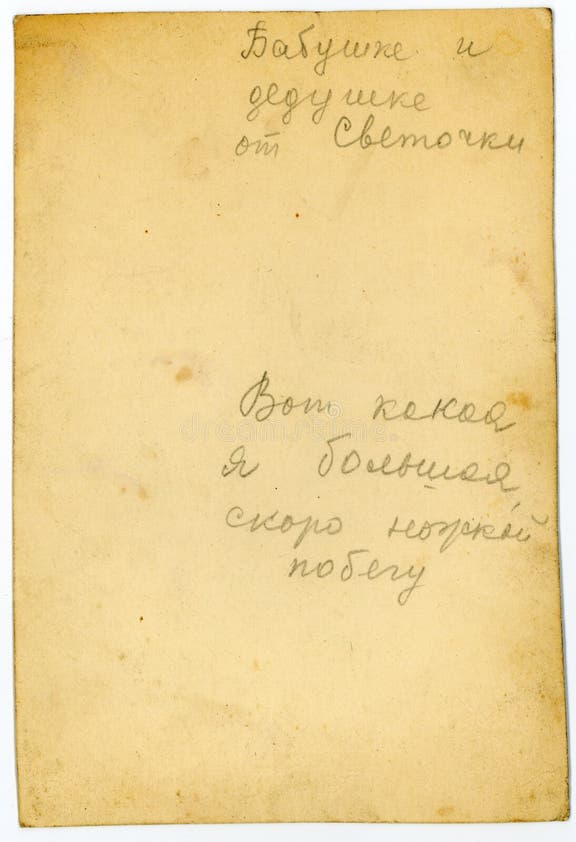 Бабушке и
дедушке
от Светочки
Вот какая
я большая,
скоро ножкой
побегу
dreamstime.com